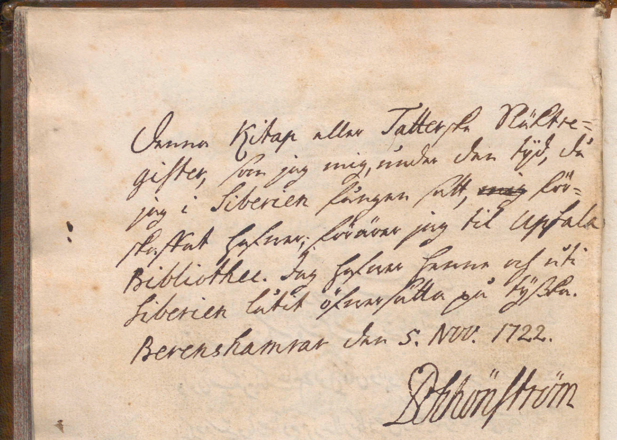 Denna Kitap eller Tatterske Släktre=
gister, som jag mig, under den tijd, då
jag i Siberien fången satt, mig för=
skaffat hafwer; förärer jag til Upsala
Bibliothec. Jag hafwer henne och uti
Siberien låtit öfwersätta på Tÿska.
Berenshamrar den 5. Nov. 1722.
PSchönström